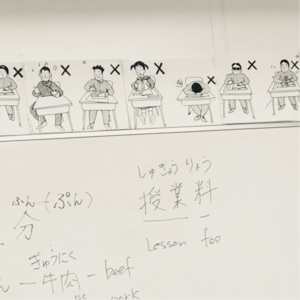 ふん(ぷん)
分
ぎゅうにく
牛肉 - beef
pork
じゅぎょう りょう
授業料
Lesson fee